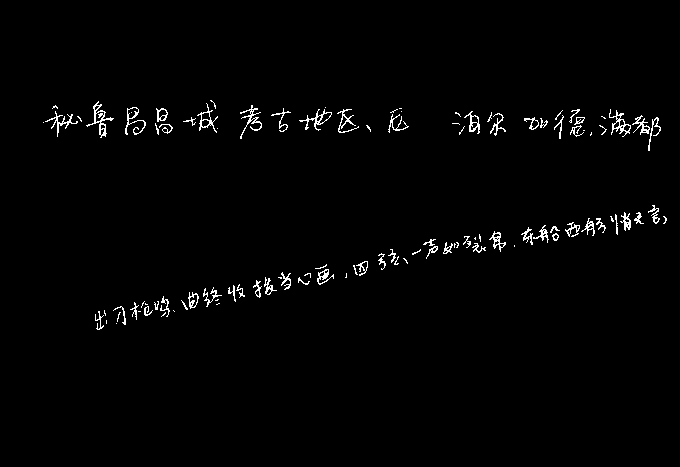 秘鲁昌昌城考古地区、厄 泊尔加德,满都
出刀枪鸣.曲终收拨当心画,四弦、一声如裂帛.东船西舫悄无言,